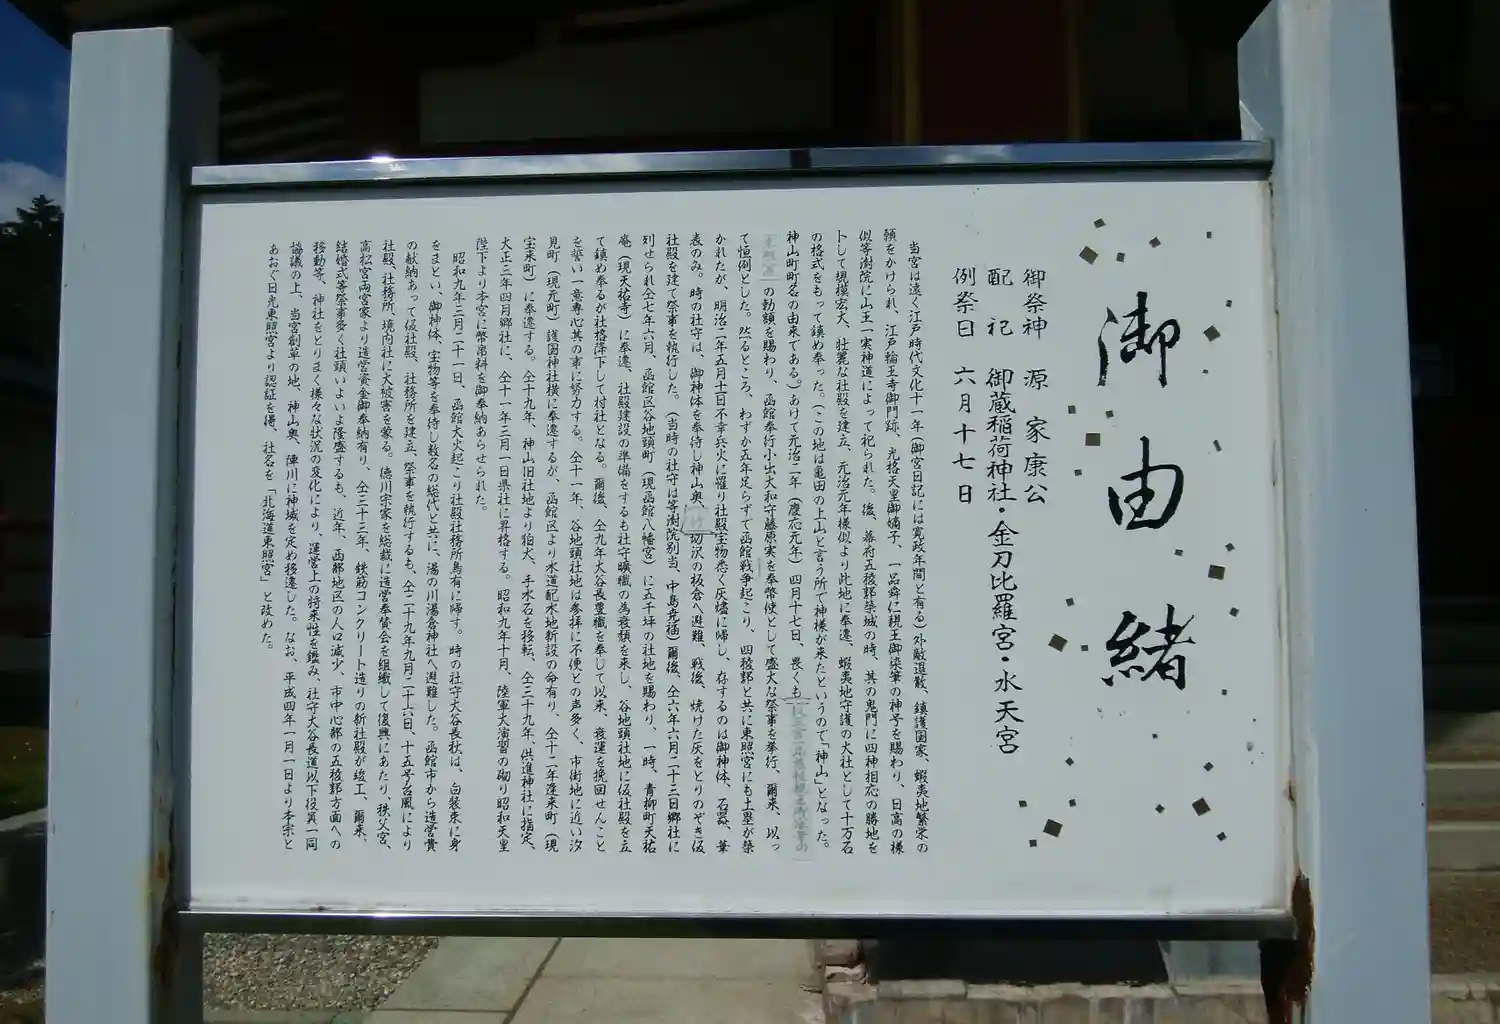 御由緒
御祭神 源 家康公
配祀 御蔵稲荷神社・金刀比羅宮・水天宮
例祭日 六月十七日
当宮は遠く江戸時代文化十一年(御宮日記には寛政年間と有る)外敵退散、鎮護国家、蝦夷地繁栄の
願をかけられ、江戸輪王寺御門跡、光格天皇御嫡子、一品舜仁親王御染筆の神号を賜わり、日高の様
似等澍院に山王一実神道によって祀られた。後、幕府五稜郭築城の時、其の鬼門に四神相応の勝地を
卜して規模宏大、壮麗な社殿を建立、元治元年様似より此地に奉遷、蝦夷地守護の大社として十万石
の格式をもって鎮め奉った。(この地は亀田の上山と言う所で神様が来たというので「神山」となった。
神山町町名の由来である。)あけて元治二年(慶応元年)四月十七日、畏くも
の勅額を賜わり、函館奉行小出大和守藤原実を奉幣使として盛大な祭事を挙行、爾来、以っ
て恒例とした。然るところ、わずか五年足らずで函館戦争起こり、四稜郭と共に東照宮にも土塁が築
かれたが、明治二年五月十日不幸兵火に罹り社殿宝物悉く灰燼に帰し、存するのは御神体、石器、華
表のみ。時の社守は、御神体を奉持し神山奥、切沢の板倉へ避難、戦後、焼けた灰をとりのぞき仮
社殿を建て祭事を執行した。(当時の社守は等澍院別当、中島尭福)爾後、仝六年六月二十三日郷社に
列せられ仝七年六月、函館区谷地頭町(現函館八幡宮)に五千坪の社地を賜わり、一時、青柳町天祐
庵(現天祐寺)に奉遷、社殿建設の準備をするも社守曠職の為衰頽を来し、谷地頭社地に仮社殿を立
て鎮め奉るが社格降下して村社となる。爾後、仝九年大谷長豊職を奉して以来、衰運を挽回せんこと
を誓い一意専心其の事に努力する。仝十一年、谷地頭社地は参拝に不便との声多く、市街地に近い汐
見町(現元町)護国神社横に奉遷するが、函館区より水道配水地新設の命有り、仝十二年蓬来町(現
宝来町)に奉遷する。仝十九年、神山旧社地より狛犬、手水石を移転、仝三十九年、供進神社に指定、
大正三年四月郷社に、仝十一年三月一日県社に昇格する。昭和九年十月、陸軍大演習の砌り昭和天皇
陛下より本宮に幣帛料を御奉納あらせられた。
昭和九年三月二十一日、函館大火起こり社殿社務所烏有に帰す。時の社守大谷長秋は、白装束に身
をまとい、御神体、宝物等を奉持し数名の総代と共に、湯の川湯倉神社へ避難した。函館市から造営費
の献納あって仮社殿、社務所を建立、祭事を執行するも、仝二十九年九月二十六日、十五号台風により
社殿、社務所、境内社に大被害を蒙る。徳川宗家を総裁に造営奉賛会を組織して復興にあたり、秩父宮、
高松宮両宮家より造営資金御奉納有り、仝三十三年、鉄筋コンクリート造りの新社殿が竣工、爾来、
結婚式等祭事多く社頭いよいよ隆盛するも、近年、西部地区の人口減少、市中心部の五稜郭方面への
移動等、神社をとりまく様々な状況の変化により、運営上の将来性を鑑み、社守大谷長道以下役員一同
協議の上、当宮創草の地、神山奥、陣川に神域を定め移遷した。なお、平成四年一月一日より本宗と
あおぐ日光東照宮より認証を得、社名を「北海道東照宮」と改めた。